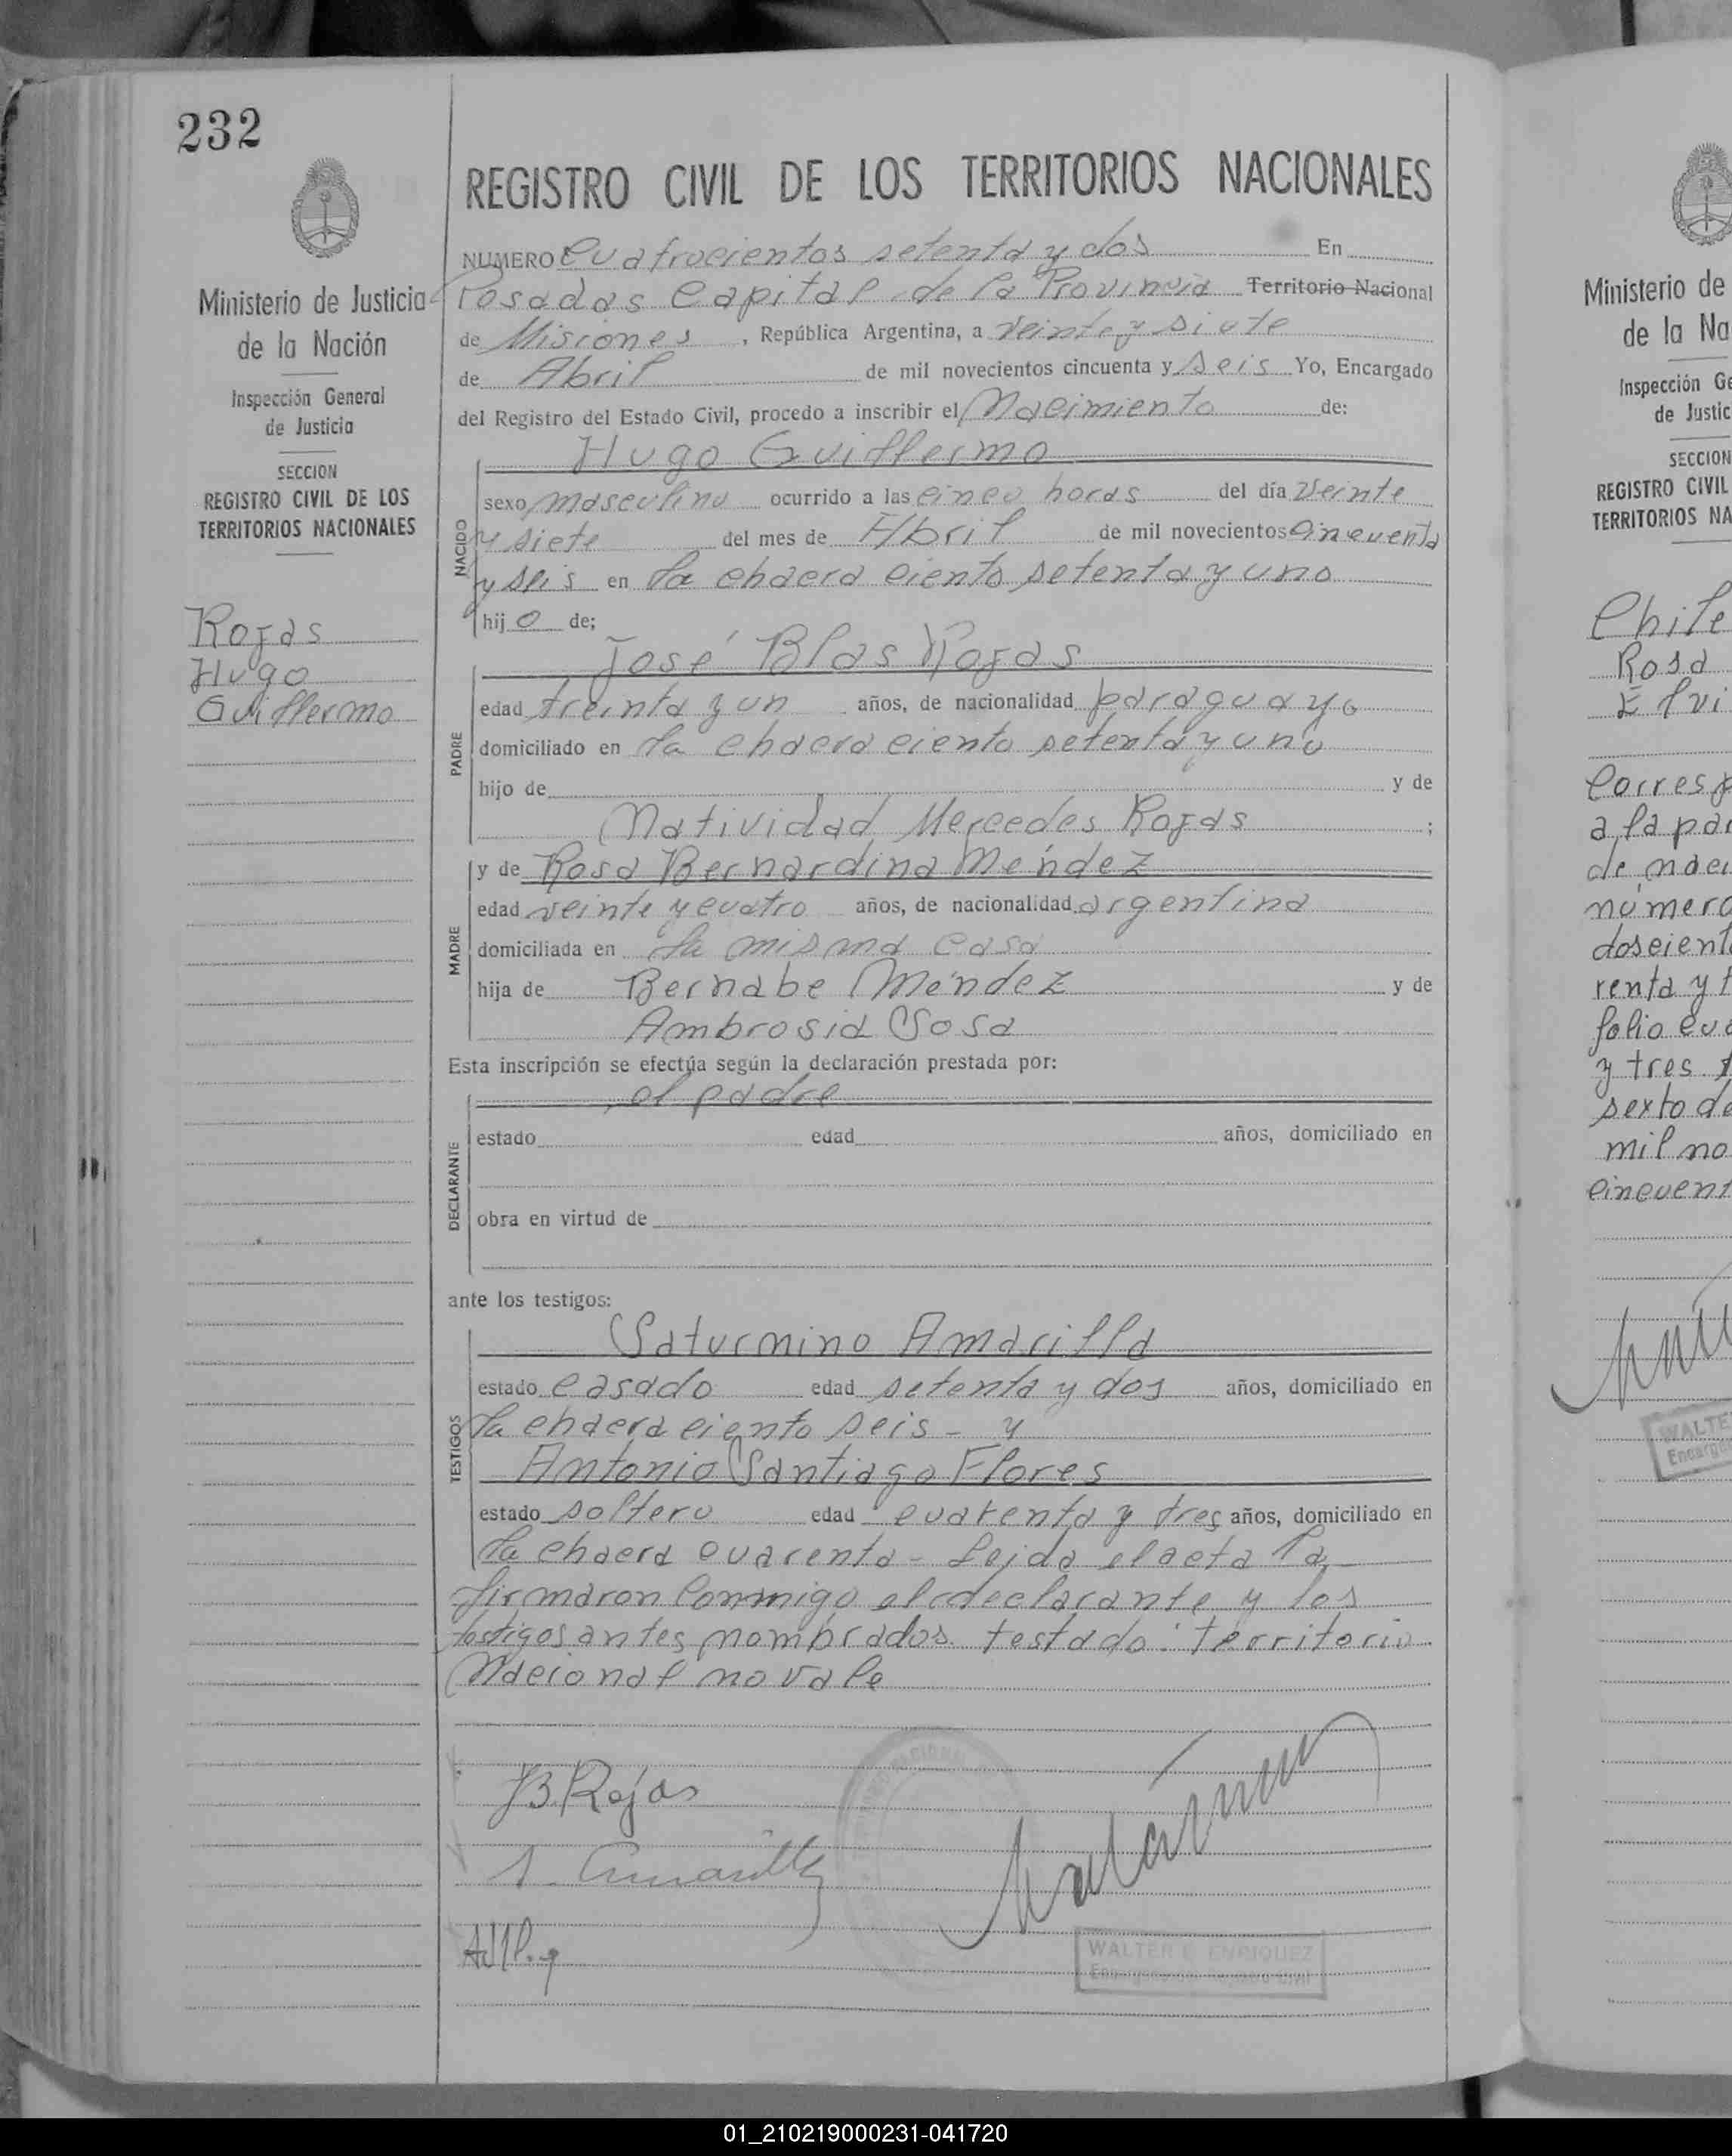 232
REGISTRO CIVIL DE LOS TERRITORIOS NACIONALES
Ministerio de Justicia
de la Nación
Inspección General
de Justicia
SECCION
REGISTRO CIVIL DE LOS
TERRITORIOS NACIONALES
Rojas
Hugo
Guillermo
NUMERO Cuatrocientos setenta y dos En
Posadas Capital de la Provincia Territorio Nacional
de Misiones, República Argentina, a veinte y siete
de Abril de mil novecientos cincuenta y seis Yo, Encargado
del Registro del Estado Civil, procedo a inscribir el Nacimiento de:
Hugo Guillermo
NACIDO
sexo masculino ocurrido a las cinco horas del día veinte
y siete del mes de Abril de mil novecientos cincuenta
y seis en la chacra ciento setenta y uno
hijo de;
José Blas Rojas
PADRE
edad treinta y un años, de nacionalidad paraguayo
domiciliado en la chacra ciento setenta y uno
hijo de y de
Natividad Mercedes Rojas ;
y de Rosa Bernardina Méndez
MADRE
edad veinte y cuatro años, de nacionalidad argentina
domiciliada en la misma casa
hija de Bernabe Méndez y de
Ambrosia Sosa
Esta inscripción se efectúa según la declaración prestada por:
el padre
DECLARANTE
estado edad años, domiciliado en
obra en virtud de
ante los testigos:
Saturnino Amarilla
TESTIGOS
estado casado edad setenta y dos años, domiciliado en
la chacra ciento seis - y
Antonio Santiago Flores
estado soltero edad cuarenta y tres años, domiciliado en
la chacra cuarenta - Leida el acta la
firmaron conmigo el declarante y los
testigos antes nombrados. testado: territorio
Nacional no vale
JB. Rojas
S. Amarilla
WALTER E. ENRIQUEZ
Ministerio de
de la Na
Inspección Ge
de Justic
SECCION
REGISTRO CIVIL
TERRITORIOS NA
Chile
Rosa
Elvi
Corresp
a la par
de naci
número
doscient
renta y t
folio cua
y tres
sexto de
mil no
cincuent
WALTE
Encarg
01_210219000231-041720